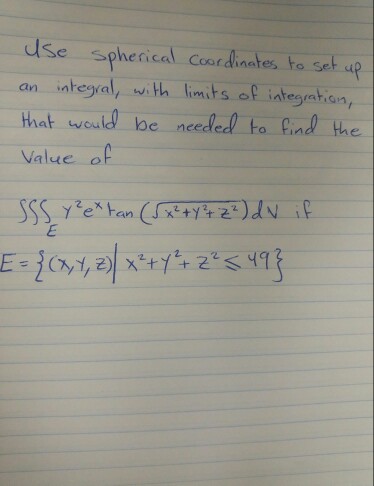 Use spherical coordinates to set up
an integral, with limits of integration,
that would be needed to find the
Value of
∭_E y²eˣ tan (√x²+y²+z²) dV if
E = {(x,y,z)| x²+y²+z² ≤ 49}